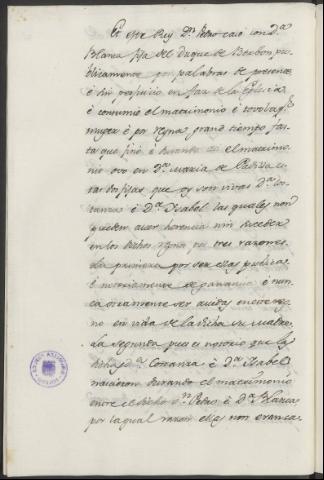 El qual Rey Dn. Pedro casó con Da.
Blanca fija del Duque de Borbon pu-
blicamente por palabras de presente
é sin perjuicio en faz de la Eglesia
é consumió el matrimonio é tovola pr.
muger é por reyna grand tiempo fas-
ta que finó é durante el matrimo-
nio ovo en Da. Maria de Padilla
dos fijas que oy son vivas Da. Cos-
tanza é Da. Isabel las quales non
pueden aver herencia nin suceder
en los dichos regnos por tres razones.
La primera por ser ellas publica
é notoriamente de ganancia é nun-
ca oviamente ser avidas en el reg-
no en vida de la dicha su madre.
La segunda pues es notorio que las
dichas Da. Costanza é Da. Isabel
nacieron durando el matrimonio
entre el dicho Dn. Pedro é Da. Blanca
por la qual razon ellas non eran ca-